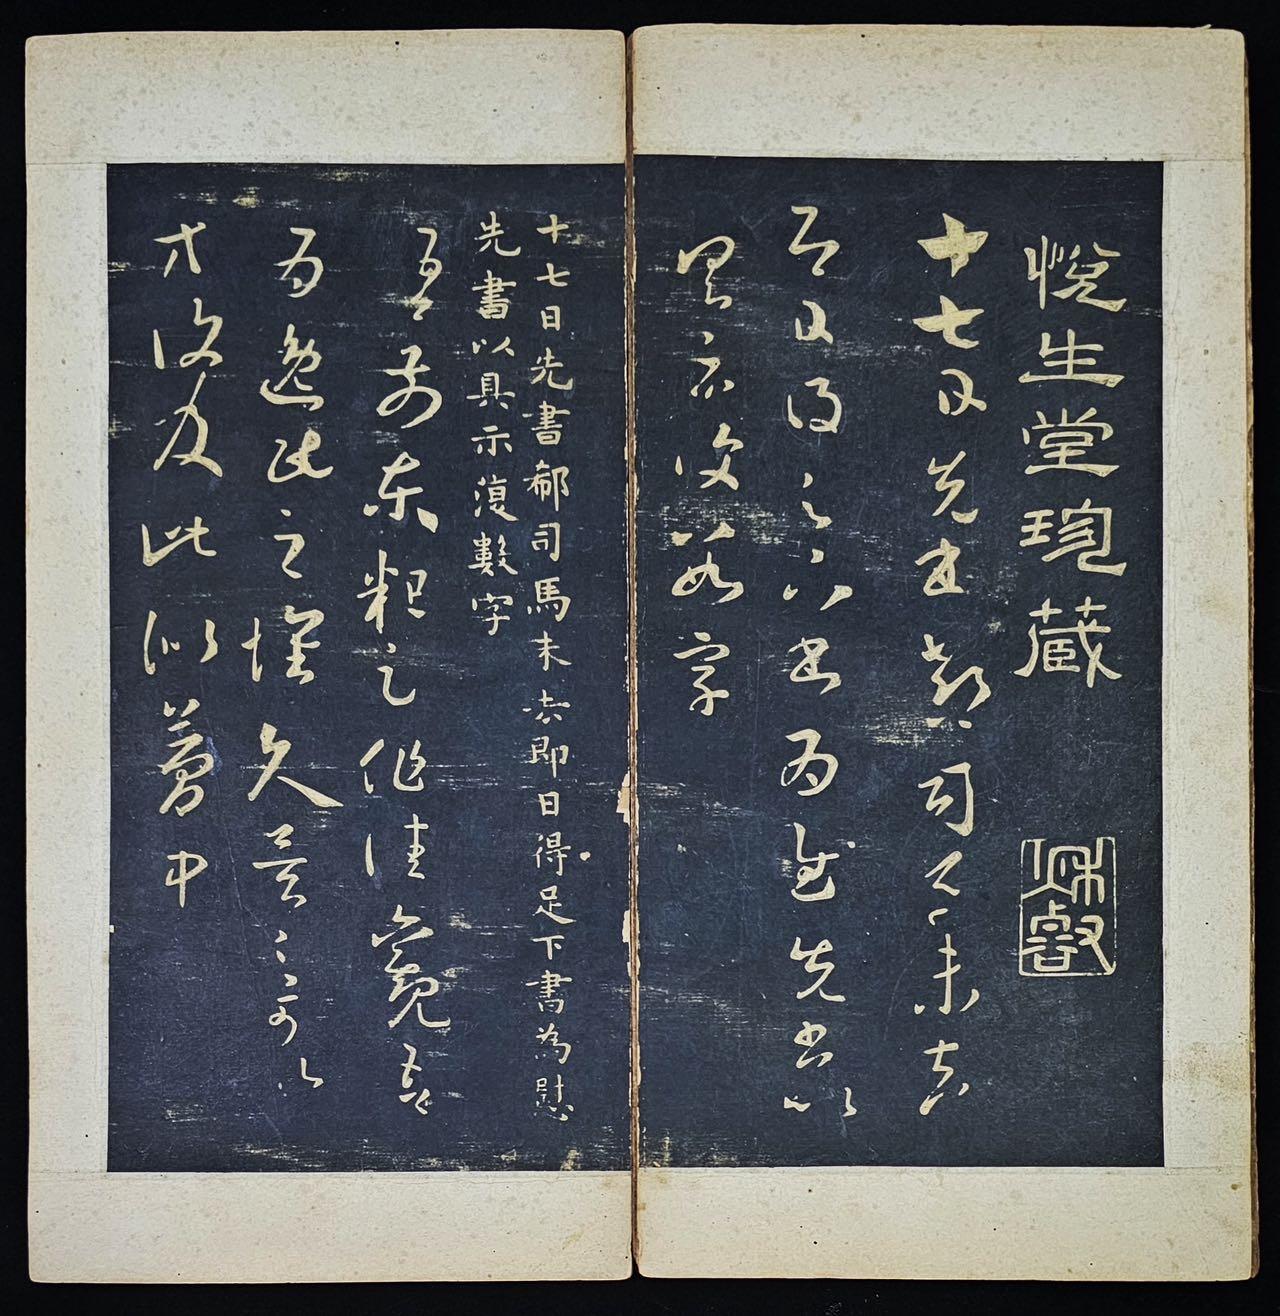 悅生堂珍藏
秋壑
十七日先書郗司馬未去
即日得足下書為慰先書以
具示復數字
十七日先書郗司馬未去即日得足下書為慰
先書以具示復數字
吾前東粗足作佳觀吾
為逸民之懷久矣足下何以
方復及此似夢中